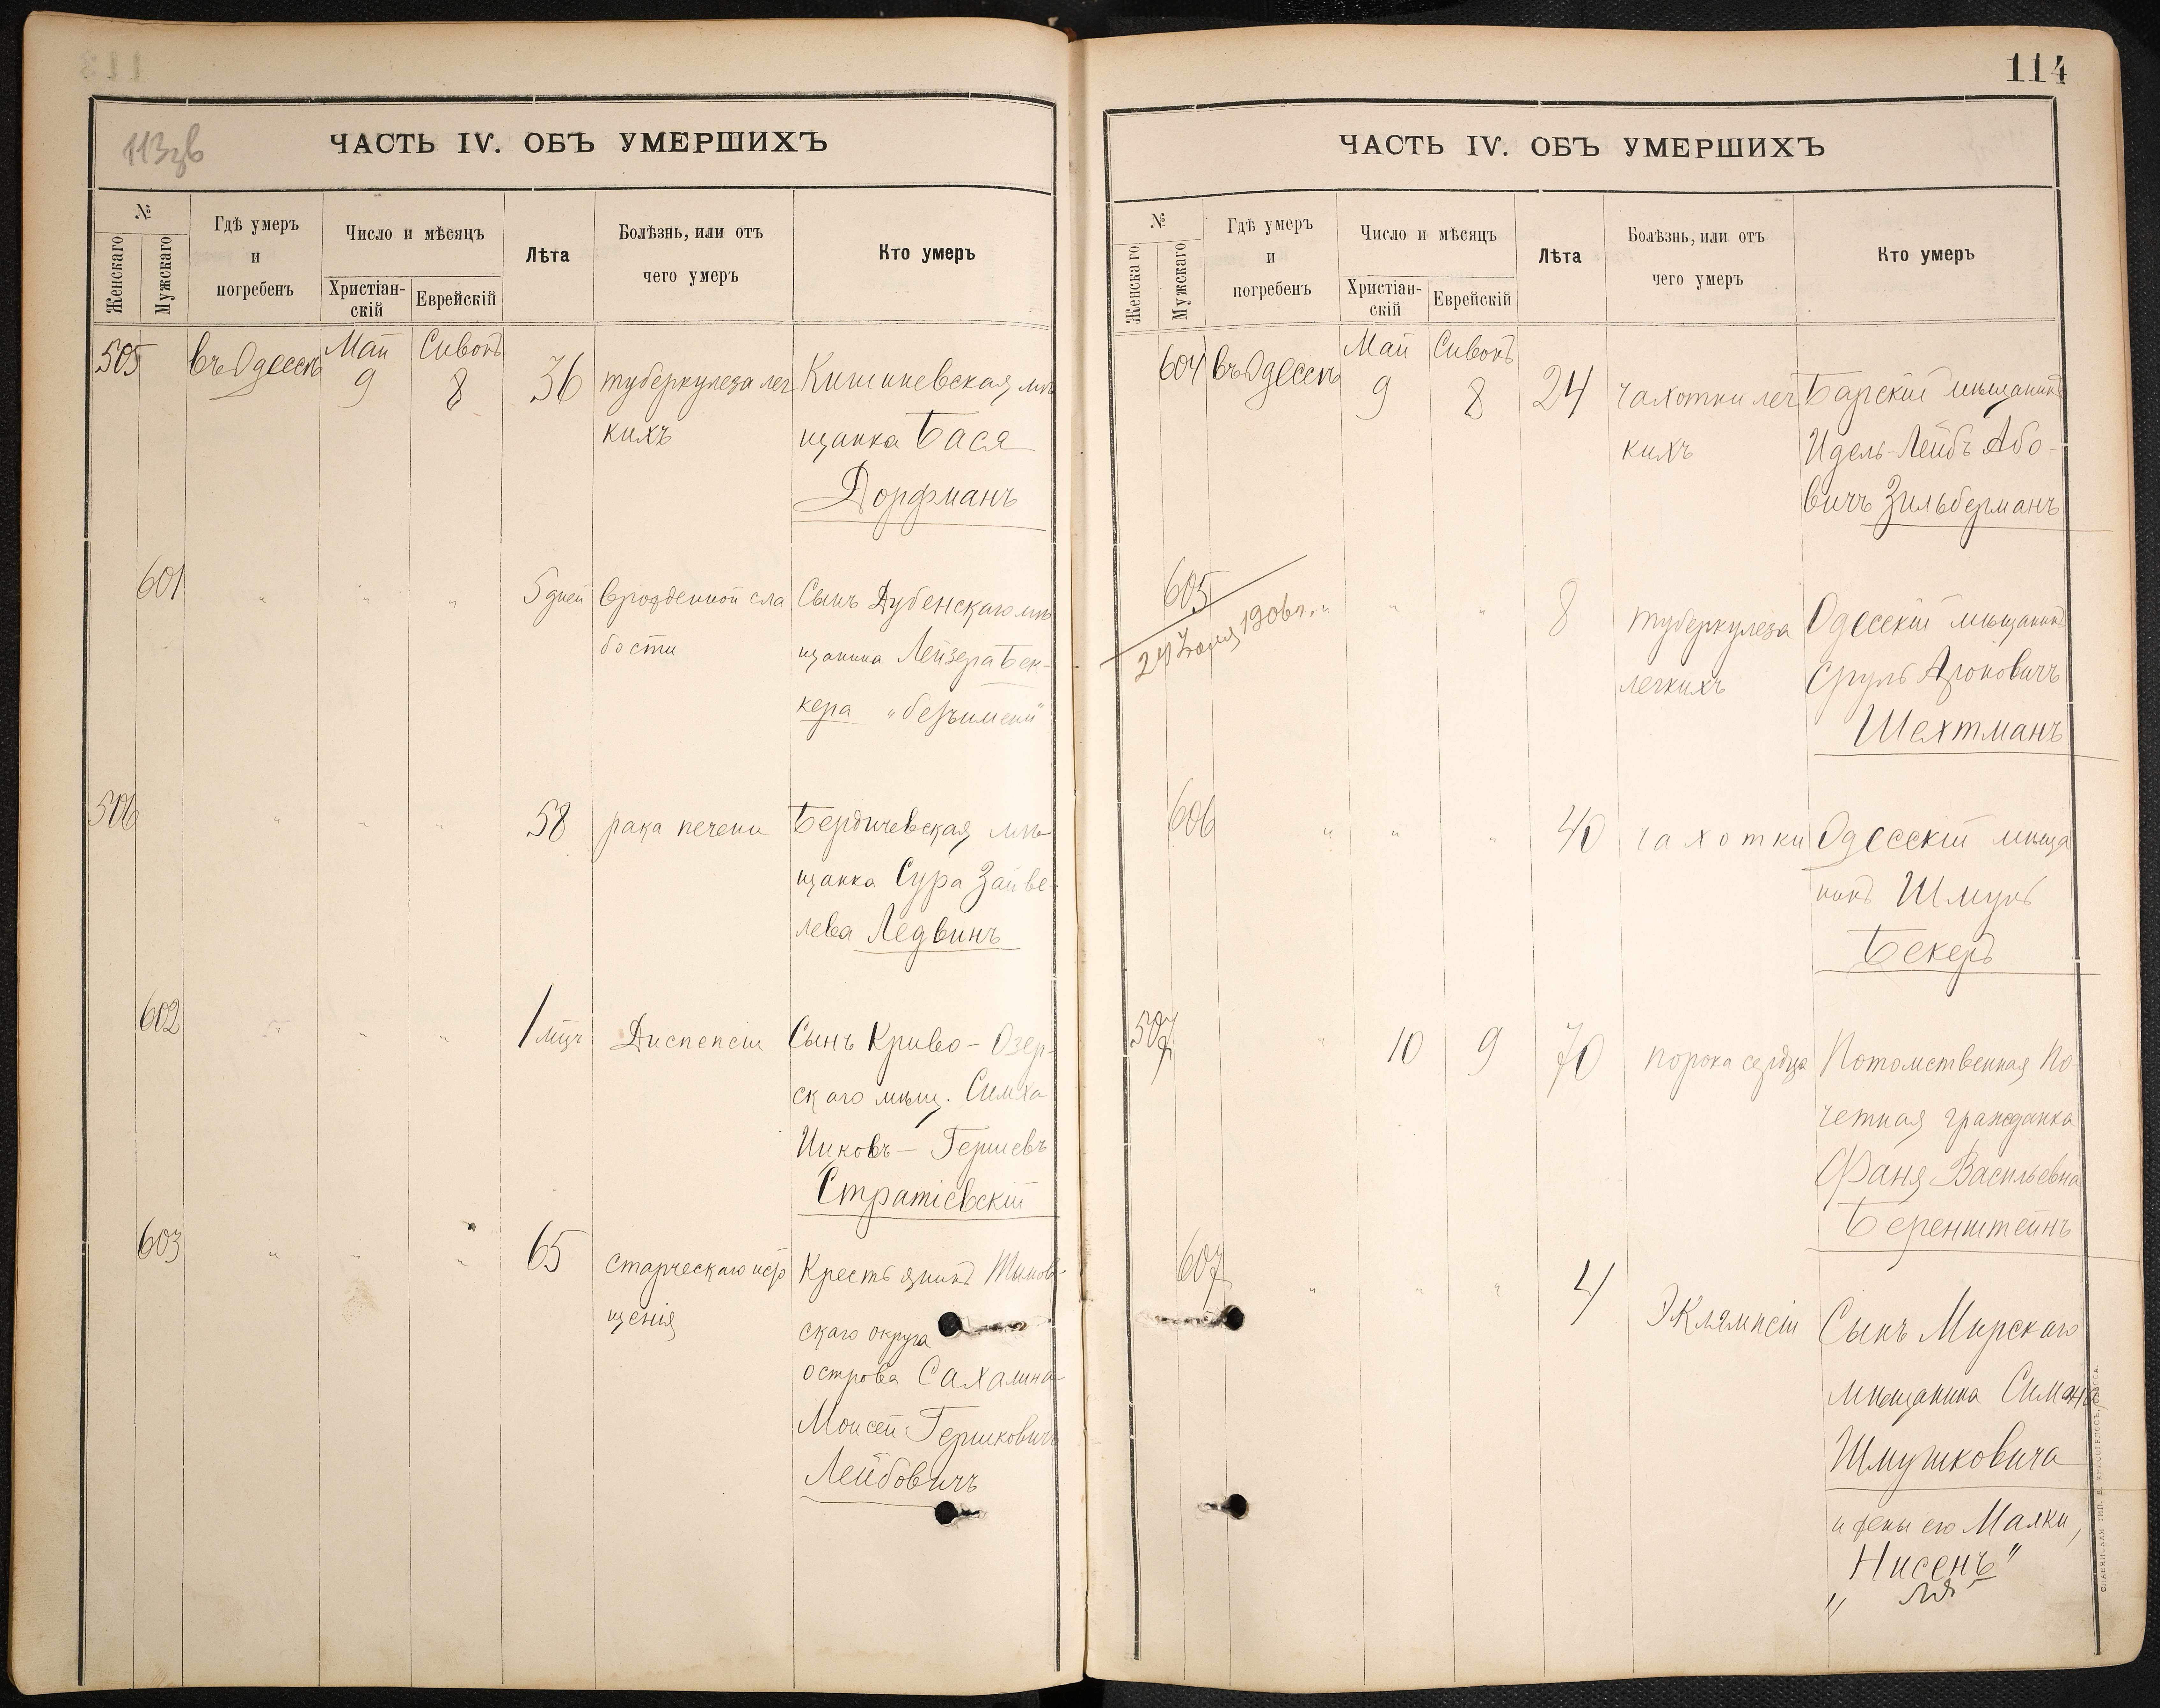 113зв
ЧАСТЬ IV. ОБЪ УМЕРШИХЪ
№
Женскаго
Мужскаго
Гдѣ умеръ
и
погребенъ
Число и мѣсяцъ
Христіан-
скій
Еврейскій
Лѣта
Болѣзнь, или отъ
чего умеръ
Кто умеръ
505 въ Одессѣ Май 9 Сивонъ 8 36 туберкулеза лег Кишиневская мѣ
кихъ щанка Бася
Дорфманъ
601 " " " 5 дней врожденной сла Сынъ Дубенскаго мѣ
бости щанина Лейзера Бек-
кера "безъимени"
506 " " " 58 рака печени Бердичевская мѣ
щанка Сура Зайве-
лева Ледвинъ
602 " " " 1 мѣс Диспепсіи Сынъ Криво-Озер-
скаго мѣщ. Симха
Гершевъ
Стратіевскій
603 " " " 65 старческаго исто Крестьянинъ Тымов-
щенія скаго округа
острова Сахалина
Моисей Гершковичъ
Лейбовичъ
114
ЧАСТЬ IV. ОБЪ УМЕРШИХЪ
№
Женскаго
Мужскаго
Гдѣ умеръ
и
погребенъ
Число и мѣсяцъ
Христіан-
скій
Еврейскій
Лѣта
Болѣзнь, или отъ
чего умеръ
Кто умеръ
604 въ Одессѣ Май 9 Сивонъ 8 24 чахотки лег Барскій мѣщанинъ
кихъ Идель-Лейбъ Або-
вичъ Зильберманъ
605 " " " 8 туберкулеза Одесскій мѣщанинъ
24 Іюля 1906 г. легкихъ Сруль Ароновичъ
Шехтманъ
606 " " " 40 чахотки Одесскій мѣща
нинъ Шмуль
Бекеръ
507 " 10 9 70 порока сердца Потомственная По-
четная гражданка
Фаня Васильевна
Беренштейнъ
607 " " " 4 Эклямпсіи Сынъ Мирскаго
мѣщанина Симона
Шмушковича
и жены его Малки,
"Нисенъ"
СЛАВЯНСКАЯ ТИП. Е. ХРИСОГЕЛОСЪ, ОДЕССА.